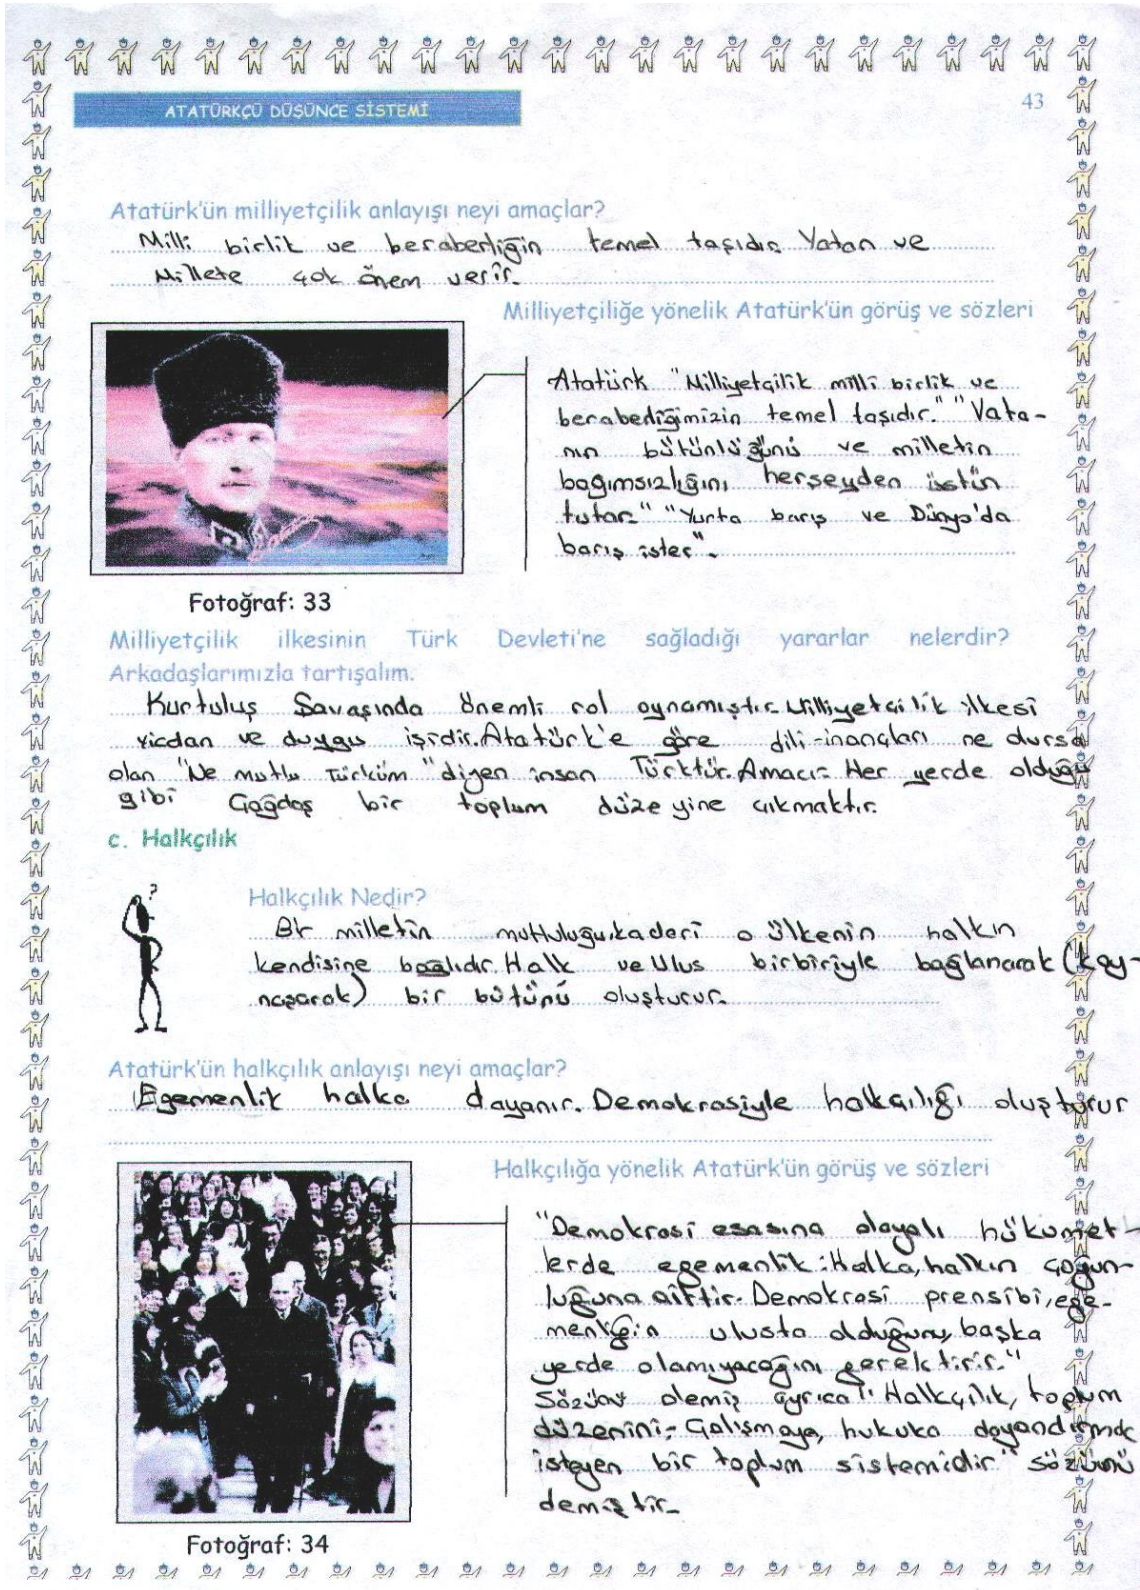 ATATÜRKÇÜ DÜŞÜNCE SİSTEMİ
43
Atatürk'ün milliyetçilik anlayışı neyi amaçlar?
Milli birlik ve beraberliğin temel taşıdır. Vatan ve
Millete çok önem verir.
Milliyetçiliğe yönelik Atatürk'ün görüş ve sözleri
Atatürk "Milliyetçilik milli birlik ve
beraberliğimizin temel taşıdır." "Vata-
nın bütünlüğünü ve milletin
bağımsızlığını herşeyden üstün
tutar." "Yurta barış ve Dünya'da
barış ister".
Fotoğraf: 33
Milliyetçilik ilkesinin Türk Devleti'ne sağladığı yararlar nelerdir?
Arkadaşlarımızla tartışalım.
Kurtuluş Savaşında önemli rol oynamıştır. Milliyetçilik ilkesi
vicdan ve duygu işidir. Atatürk'e göre dili-inançları ne olursa
olsun "Ne mutlu Türküm" diyen insan Türktür. Amacı: Her yerde olduğu
gibi Çağdaş bir toplum düzeyine çıkmaktır.
c. Halkçılık
?
Halkçılık Nedir?
Bir milletin mutluluğu, kaderi o ülkenin halkın
kendisine bağlıdır. Halk ve Ulus birbiriyle bağlanarak (kay-
naşarak) bir bütünü oluşturur.
Atatürk'ün halkçılık anlayışı neyi amaçlar?
Egemenlik halka dayanır. Demokrasiyle halkçılığı oluşturur
Halkçılığa yönelik Atatürk'ün görüş ve sözleri
"Demokrasi esasına dayalı hükümet-
lerde egemenlik: Halka, halkın çoğun-
luğuna aittir. Demokrasi prensibi, ege-
menliğin ulusta olduğunu, başka
yerde olamıyacağını gerektirir."
Sözünü demiş ayrıca "Halkçılık, toplum
düzenini- Çalışmaya, hukuka dayandırmak
isteyen bir toplum sistemidir" sözünü
demiştir.
Fotoğraf: 34